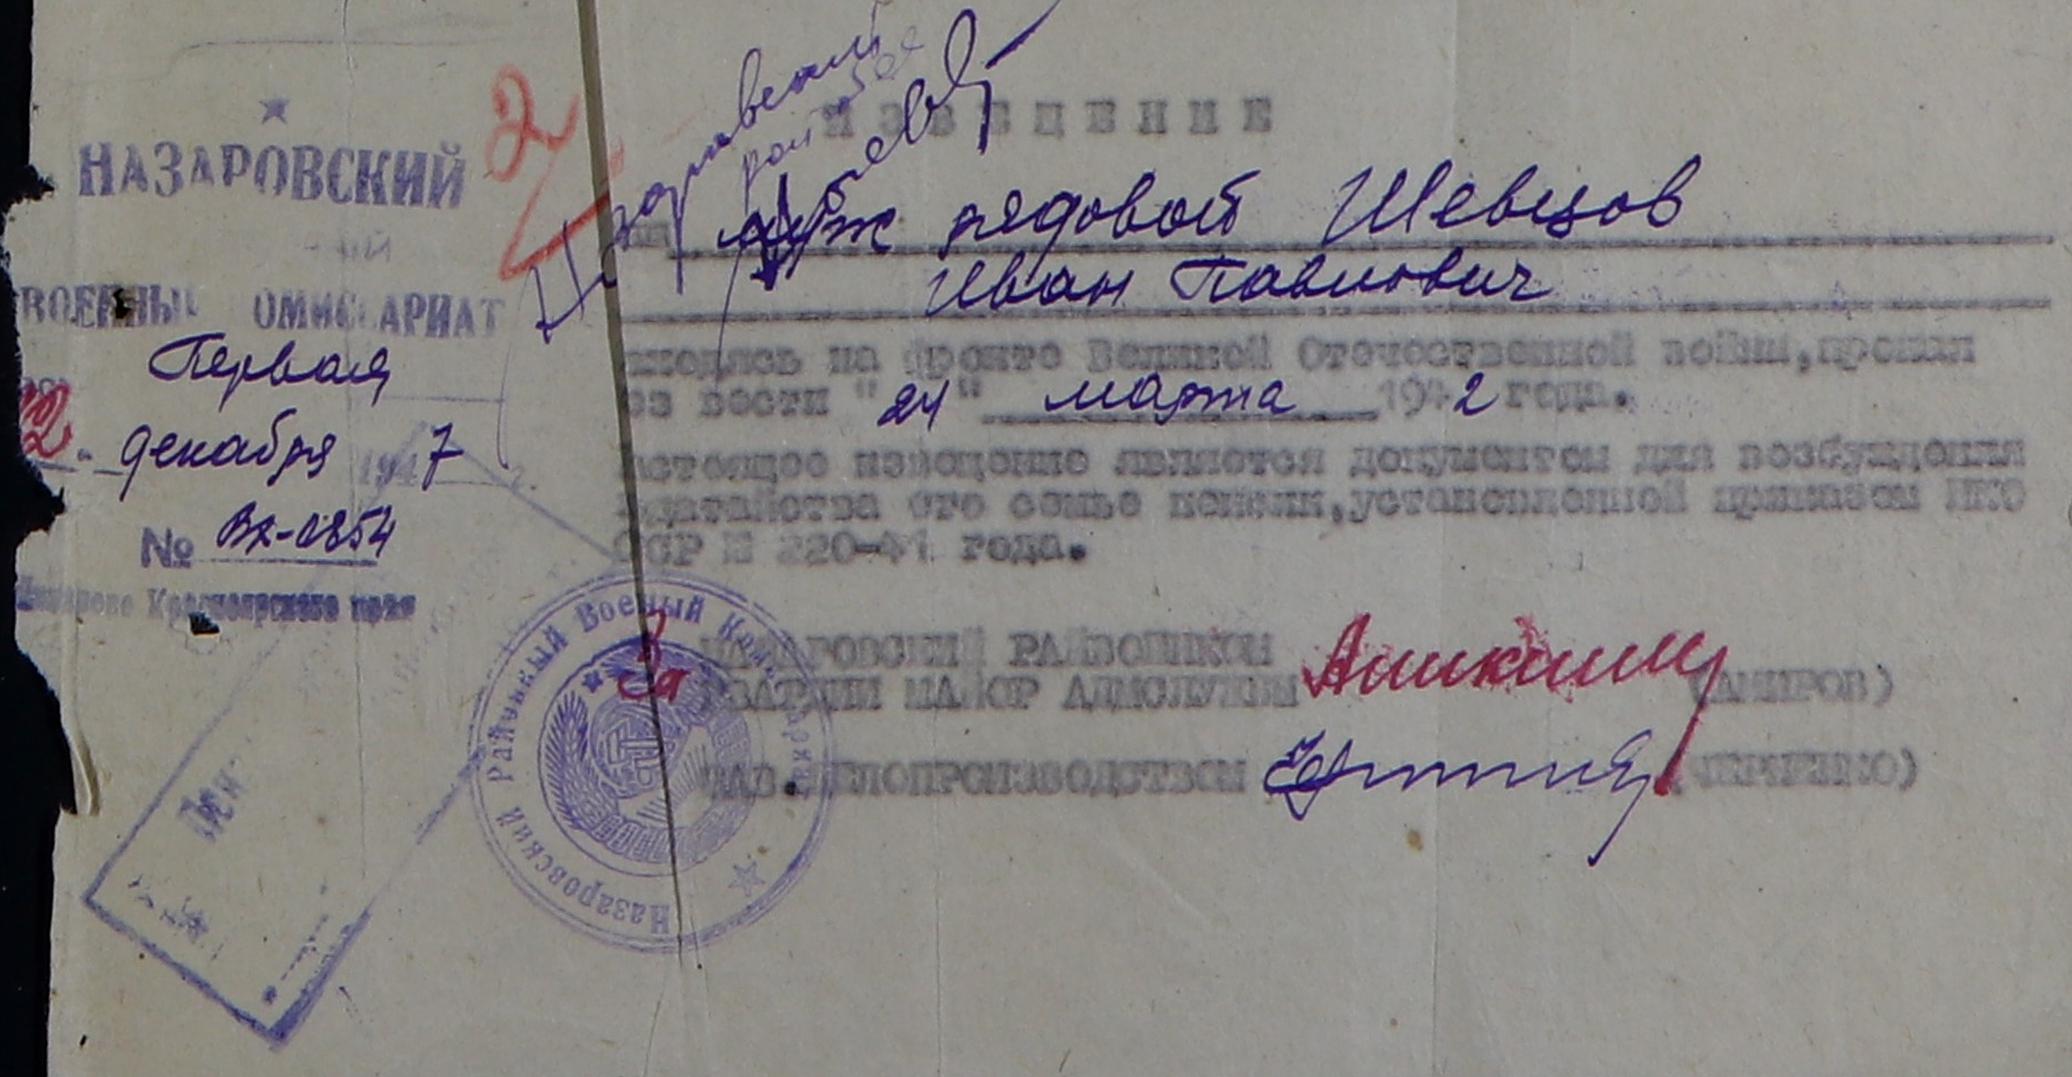 НАЗАРОВСКИЙ
ВОЕННЫЙ ОМИССАРИАТ
Первая
декабря 1947 г.
№ ВХ-0854
Красноярского края
2
ИЗВЕЩЕНИЕ
муж рядовой Шевцов
Иван Павлович
находясь на фронте Великой Отечественной войны, пропал
без вести "24" марта 1942 года.
настоящее извещение является документом для возбуждения
ходатайства его семье пенсии, установленной приказом НКО
СССР № 220-41 года.
За НАЗАРОВСКИЙ РАЙВОЕНКОМ
ГВАРДИИ МАЙОР АДМСЛУЖБЫ (АМИРОВ)
ЗАВ. ДЕЛОПРОИЗВОДСТВОМ
Назаровский Районный Военный Комиссариат